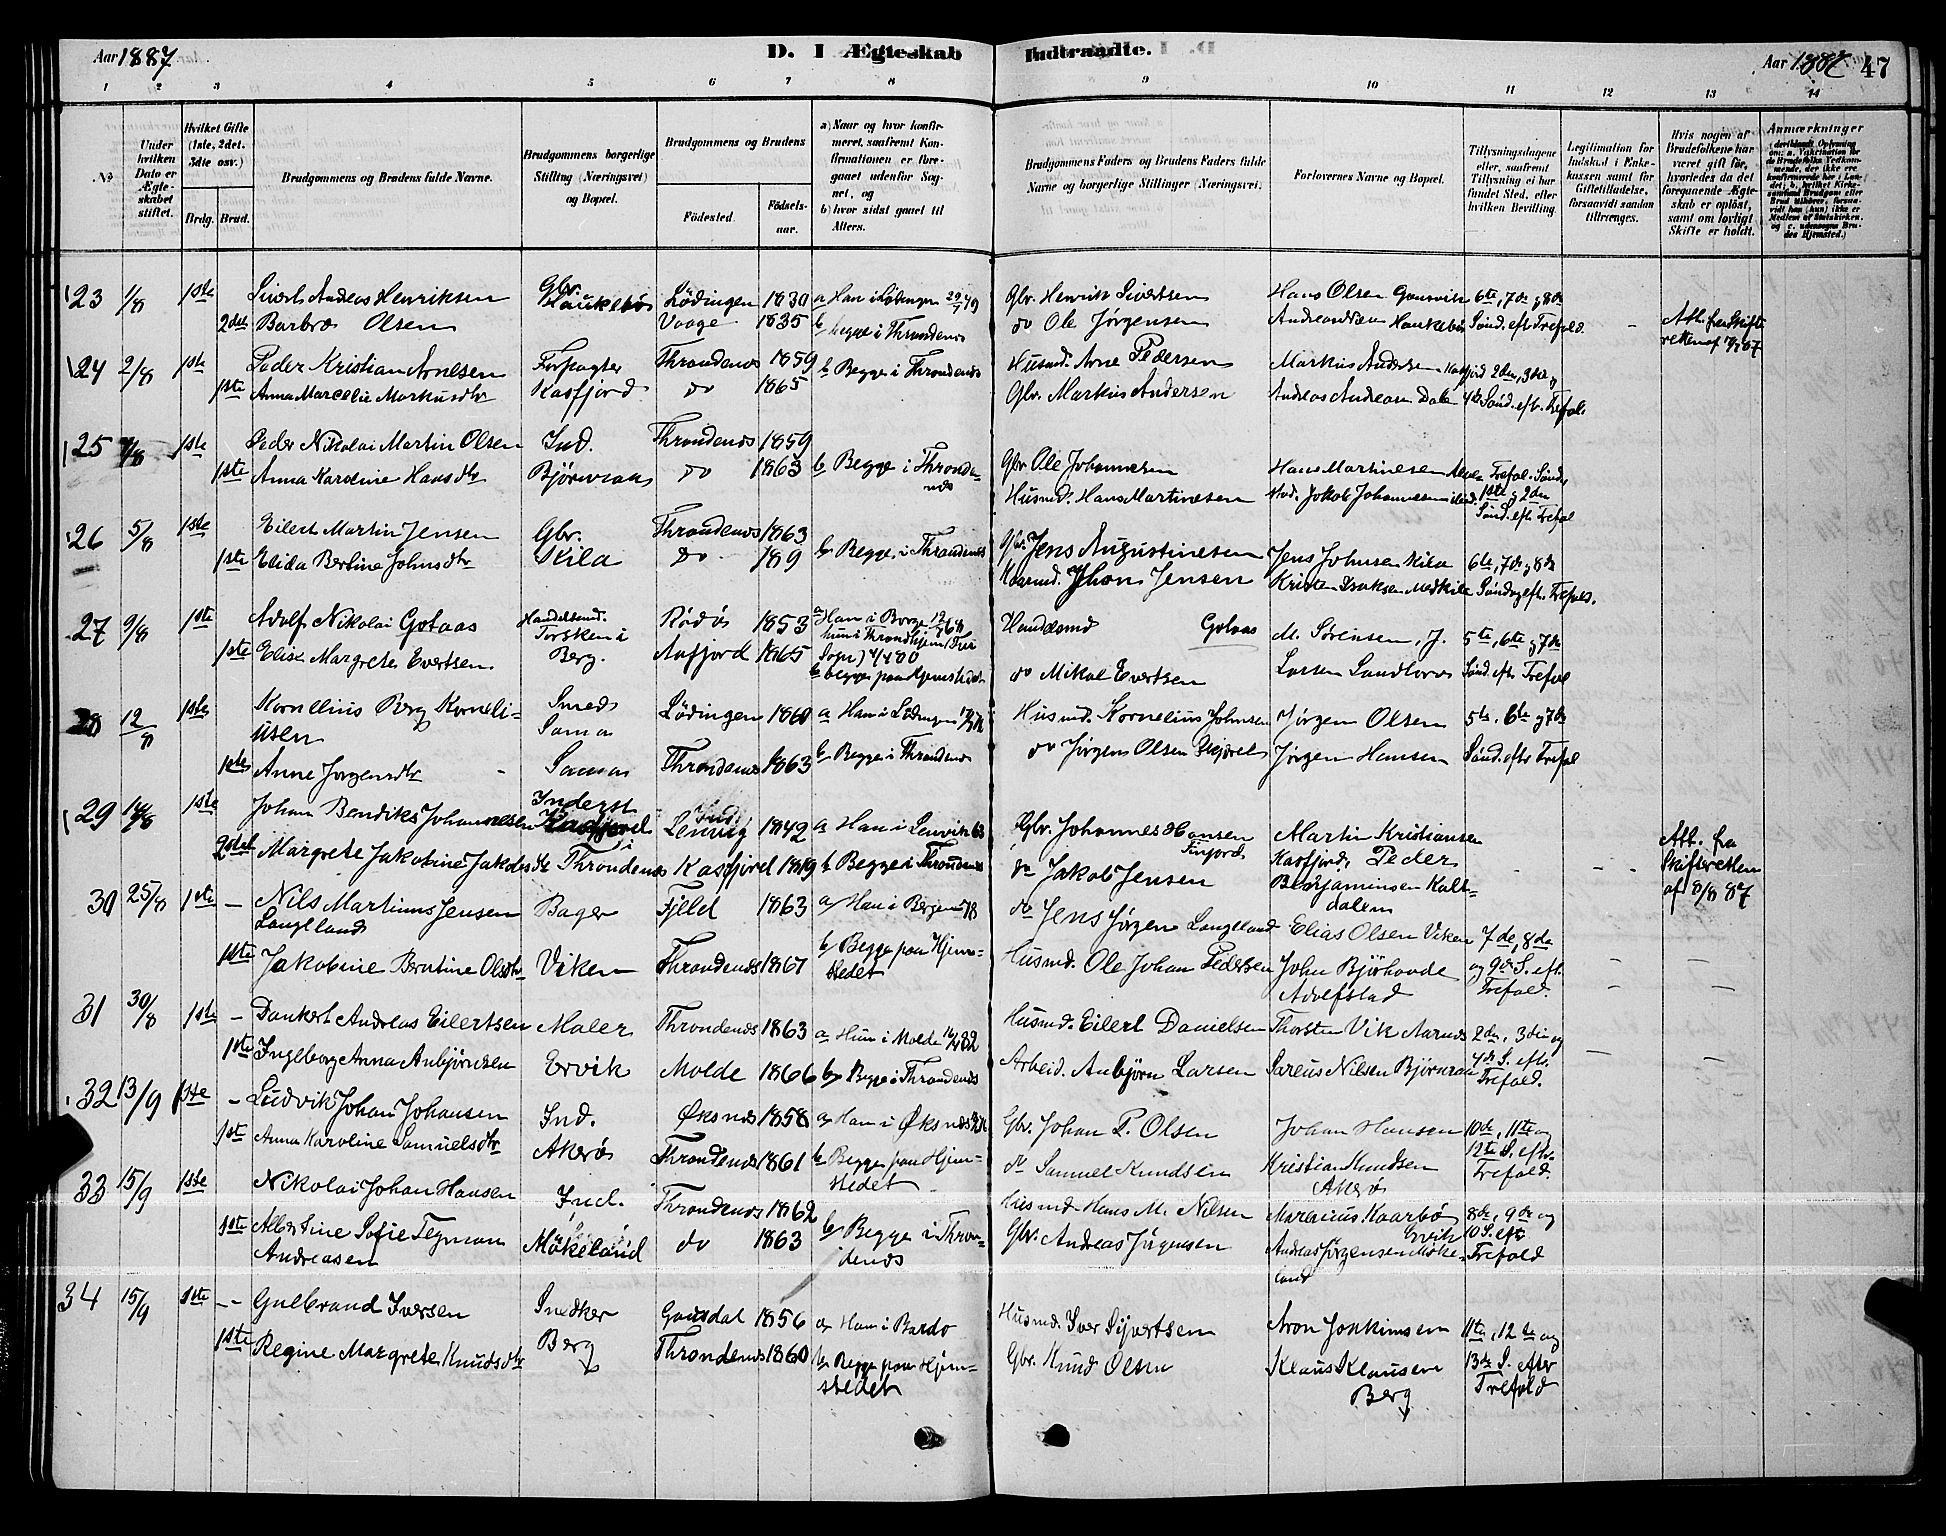 Aar 1887
D. I Ægteskab Indtraadte.
Aar 1887 47
1 2 3 4 5 6 7 8 9 10 11 12 13 14
No
Under hvilken Dato er Ægteskabet stiftet.
Hvilket Gifte (1ste, 2det, 3die osv.)
Brdg. Brud.
Brudgommens og Brudens fulde Navne.
Brudgommens borgerlige Stilling (Næringsvei) og Bopæl.
Brudgommens og Brudens
Fødested. Fødselsaar.
a) Naar og hvor konfirmeret, saafremt Konfirmationen er foregaaet udenfor Sognet, og
b) hvor sidst gaaet til Alters.
Brudgommens Faders og Brudens Faders fulde Navne og borgerlige Stillinger (Næringsvei)
Forlovernes Navne og Bopæl.
Tillysningsdagene eller, saafremt Tillysning ei har fundet Sted, efter hvilken Bevilling.
Legitimation for Indskud i Enkekassen samt for Giftetilladelse, forsaavidt saadan tiltrænges.
Hvis nogen af Brudefolkene har været gift før, hvorledes da det foregaaende Ægteskab er opløst, samt om lovligt Skifte er holdt.
Anmærkninger
23 1/8 1ste Sivert Andreas Henriksen Gbr. Haukebø Lödingen 1830 a Han i Lödingen Gbr. Henrik Sivertsen Hans Olsen Gausvik 6te, 7de og 8de
2det Barbro Olsen Vaage 1835 b begge i Throndenes do Ole Jørgensen Andreas Haukebø Sönd. eft. Trefold. - Att. fra Skifteretten af
24 2/8 1ste Peder Kristian Arnesen Forpagter Throndenes 1859 b Begge i Throndenes Husmd. Arne Pedersen Markus Andersen Kasfjord 2den, 3die og
1ste Anna Marcelie Markusdtr Kasfjord do 1865 Gbr. Markus Andersen Andreas Andreasen Dale 4de Sönd. eft. Trefold.
25 1ste Peder Nikolai Martin Olsen Ind. Throndenes 1859 Gbr. Ole Johannesen Hans Martinesen Trefol. Sönd,
1ste Anna Karoline Hansdtr Björnraa do 1863 b Begge i Throndenes Husmd. Hans Martinesen Jakob Johannesen 1ste og 2den Sönd. eft. Trefol
26 5/8 1ste Eilert Martin Jensen Gbr. Throndenes 1863 Gbr. Jens Augustinesen Jens Johnsen Kila 6te, 7de og 8de
1ste Elida Bertine Johnsdtr Kila do 189 b Begge i Throndenes Husmd. Jhon Jensen Kristen Isaksen Medkila Söndag eft. Trefold.
27 9/8 1ste Adolf Nikolai Gotaas Handelsmd. Torsken i Rödö 1853 a Han i Borge Handelsmd Gotaas M. Sörensen, J. 5te, 6te og 7de
1ste Elise Margrete Evertsen Berg. Aafjord 1865 b begge paa Hjemstedet do Mikal Evertsen Larsen Sandtorv Sönd. eft. Trefol
28 12/8 1ste Kornelius Berg Korneliusen Smed Sama Lödingen 1860 a Han i Lödingen Husmd. Kornelius Johnsen Jörgen Olsen 5te, 6te og 7de
1ste Anne Jörgensdtr - Samaa Throndenes 1863 b Begge i Throndenes do Jörgen Olsen Jörgen Hansen Sönd. eft. Trefol
29 14/8 1ste Johan Bendiks Johannesen Inderst Kasfjord i Lenvig 1842 a Han i Lenvik 63 Gbr. Johannes Hansen Finjord Martin Kristiansen
2det Margrete Jakobine Jakobsdtr Throndenes Kasfjord 1849 b Begge i Throndenes do Jakob Jensen Kasfjord, Peder Benjaminsen Kaltdalen - - - Att. fra Skifteretten af 8/8 87
30 25/8 1ste - Nils Martinus Jensen Langeland Bager Fjeld 1863 a Han i Bergen 78 do Jens Jörgen Langeland Elias Olsen Viken 7de, 8de
1ste Jakobine Berntine Olsdtr Viken Throndenes 1867 b Begge paa Hjemstedet Husmd. Ole Johan Pedersen John Björhovde Adolfstad og 9de S. eft. Trefold.
31 30/8 1ste - Dankert Andreas Eilertsen Maler Throndenes 1863 a Hun i Molde Husmd. Eilert Danielsen Thorsten Vik Aarnes 2den, 3die og
1ste Ingeborg Anna Anbjörnsen Ervik Molde 1866 b Begge i Throndenes Arbeid. Anbjörn Larsen Sareus Nilsen Björnraa 4de S. eft. Trefold.
32 13/9 1ste - Ludvik Johan Johansen Ind. Øksnes 1858 a Han i Øksnes Gbr. Johan P. Olsen Johan Hansen 10de, 11te og
1ste Anna Karoline Samuelsdtr Akerö Throndenes 1861 b Begge paa Hjemstedet do Samuel Knudsen Kristian Knudsen Akerö 12te S. eft. Trefold.
33 15/9 1ste Nikolai Johan Hansen Ind. Throndenes 1862 Husmd Hans M. Nilsen Marenius Kaarbö Ervik 8de, 9de og
1ste Albertine Sofie Tegman Andreasen Mökeland do 1863 b Begge i Throndenes Gbr. Andreas Jörgensen Andreas Jörgensen Mökeland 10 S. eft. Trefold
34 15/9 1ste -- Gulbrand Iversen Snedker Gausdal 1856 a Han i Bardo Husmd. Iver Sijvertsen Aron Joakimsen 11te, 12te og
1ste Regine Margrete Knudsdtr Berg Throndenes 1860 b Begge paa Hjemstedet Gbr. Knud Olsen Klaus Klausen Berg 13de S. efter Trefold